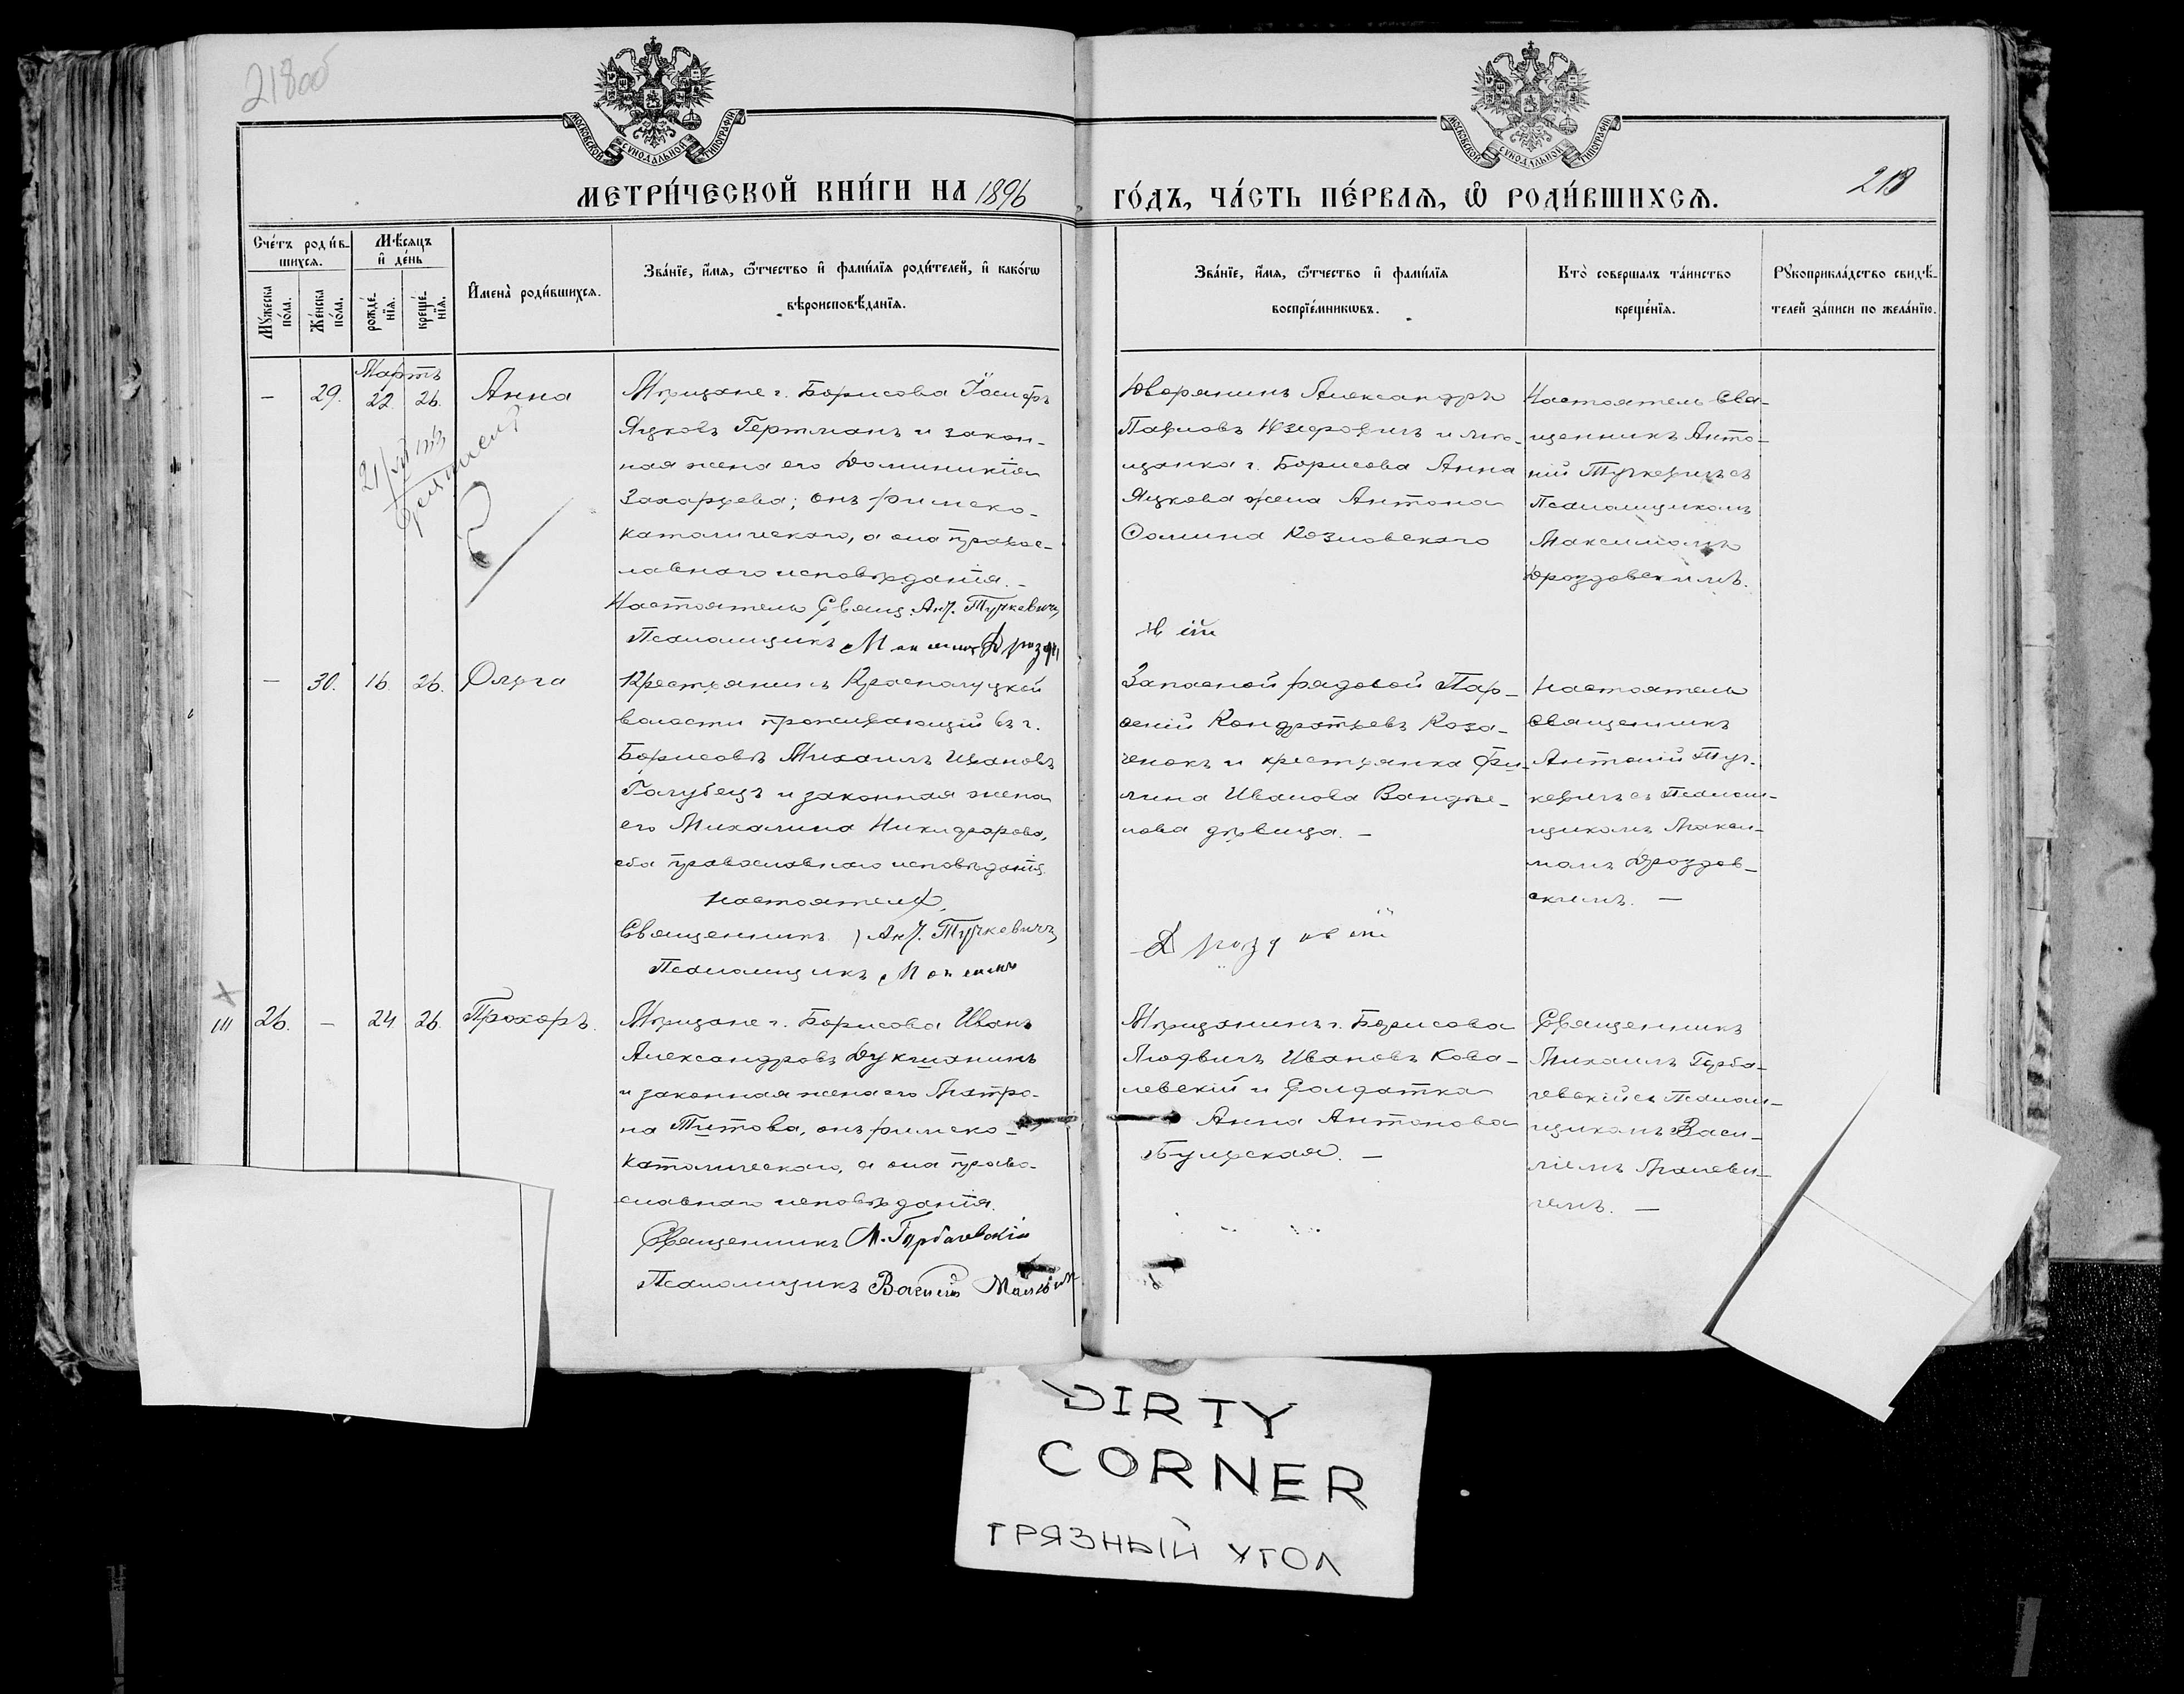 218об
МОСКОВСКОЙ СУНОДАЛЬНОЙ ТИПОГРАФІИ
МОСКОВСКОЙ СУНОДАЛЬНОЙ ТИПОГРАФІИ
МЕТРИ́ЧЕСКОЙ КНИ́ГИ НА 1896
ГО́ДЪ, ЧА́СТЬ ПЕ́РВАЯ, Ѡ РОДИ́ВШИХСЯ.
218
Сче́тъ роди́в-
шихся.
Мꙋжеска по́ла.
Же́нска по́ла.
Мѣ́сяцъ
и де́нь
рожде́-
нїя.
креще́-
нїя.
Имена̀ роди́вшихся.
Зва́нїе, и́мя, ѻ́тчество и фами́лїя роди́телей, и како́гѡ
вѣроисповѣ́данїя.
Зва́нїе, и́мя, ѻ́тчество и фами́лїя
воспрїе́мникѡвъ.
Кто̀ соверша́лъ та́инство
креще́нїя.
Рꙋкоприкла́дство свидѣ́-
телей за́писи по жела́нїю.
Мартъ
— 29. 22. 26. Анна
Мѣщане г. Борисова Іосифъ
Яцковъ Гертманъ и закон-
ная жена его Доминикія
Захарьева; онъ римско-
католическаго, а она правос-
лавнаго исповѣданія. -
Настоятель Свящ. Ант. Тучкевичъ
Псаломщикъ Максимъ Дрозд
Дворянинъ Александръ
Павловъ Юзефовичъ и мѣ-
щанка г. Борисова Анна
Яцкова жена Антона
Козловскаго
Настоятель Свя-
щенникъ Анто-
ній Тучкевичъ съ
Псаломщикомъ
Максимомъ
Дроздовскимъ.
— 30. 16. 26. Ольга
Крестьянинъ Краснолуцкой
волости проживающій въ г.
Борисовѣ Михаилъ Ивановъ
Голубецъ и законная жена
его Михалина Никифорова,
оба православнаго исповѣданія.
Настоятель
Священникъ Ант. Тучкевичъ
Псаломщикъ Максимъ
Запасной рядовой Пар-
ѳеній Кондратьевъ Коза-
ченокъ и крестьянка
Иванова
дѣвица. —
Дроздовскій
Настоятель
Священникъ
Антоній Туч-
кевичъ съ Псалом-
щикомъ Макси-
момъ Дроздов-
скимъ. —
26. — 24. 26. Прохоръ.
Мѣщане г. Борисова Иванъ
Александровъ Дукшанинъ
и законная жена его Матро-
на Титова, онъ римско-
католическаго, а она право-
славнаго исповѣданія.
Священникъ М. Горбачевскій
Псаломщикъ Василій
Мѣщанинъ г. Борисова
Людвигъ Ивановъ Кова-
левскій и Солдатка
Анна Антонова
Священникъ
Михаилъ Горба-
чевскій съ Псалом-
щикомъ Васи-
ліемъ Малеви-
чемъ. —
DIRTY
CORNER
ГРЯЗНЫЙ УГОЛ